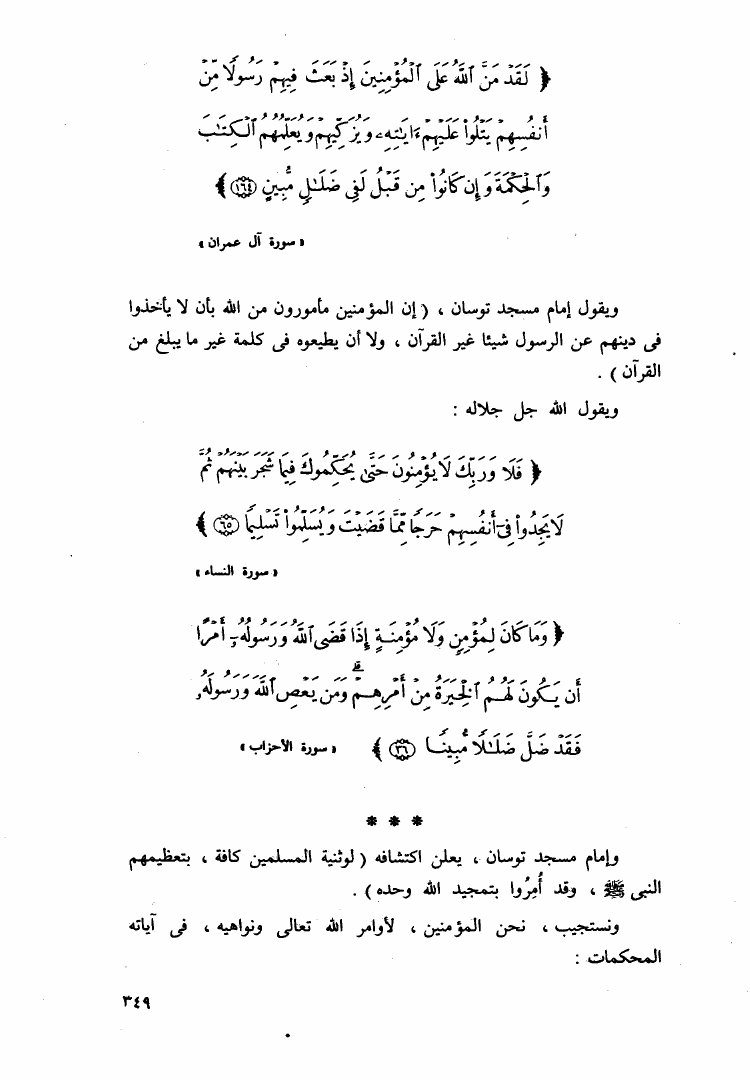 ﴿ لَقَدْ مَنَّ ٱللَّهُ عَلَى ٱلْمُؤْمِنِينَ إِذْ بَعَثَ فِيهِمْ رَسُولًا مِّنْ
أَنفُسِهِمْ يَتْلُوا۟ عَلَيْهِمْ ءَايَـٰتِهِۦ وَيُزَكِّيهِمْ وَيُعَلِّمُهُمُ ٱلْكِتَـٰبَ
وَٱلْحِكْمَةَ وَإِن كَانُوا۟ مِن قَبْلُ لَفِى ضَلَـٰلٍ مُّبِينٍ ١٦٤ ﴾
« سورة آل عمران »
ويقول إمام مسجد توسان ، ( إن المؤمنين مأمورون من الله بأن لا يأخذوا
فى دينهم عن الرسول شيئا غير القرآن ، ولا أن يطيعوه فى كلمة غير ما يبلغ من
القرآن ) .
ويقول الله جل جلاله :
﴿ فَلَا وَرَبِّكَ لَا يُؤْمِنُونَ حَتَّىٰ يُحَكِّمُوكَ فِيمَا شَجَرَ بَيْنَهُمْ ثُمَّ
لَا يَجِدُوا۟ فِىٓ أَنفُسِهِمْ حَرَجًا مِّمَّا قَضَيْتَ وَيُسَلِّمُوا۟ تَسْلِيمًا ٦٥ ﴾
« سورة النساء »
﴿ وَمَا كَانَ لِمُؤْمِنٍ وَلَا مُؤْمِنَةٍ إِذَا قَضَى ٱللَّهُ وَرَسُولُهُۥٓ أَمْرًا
أَن يَكُونَ لَهُمُ ٱلْخِيَرَةُ مِنْ أَمْرِهِمْ ۗ وَمَن يَعْصِ ٱللَّهَ وَرَسُولَهُۥ
فَقَدْ ضَلَّ ضَلَـٰلًا مُّبِينًا ٣٦ ﴾ « سورة الأحزاب »
* * *
وإمام مسجد توسان ، يعلن اكتشافه ( لوثنية المسلمين كافة ، بتعظيمهم
النبى ﷺ ، وقد أُمِرُوا بتمجيد الله وحده ) .
ونستجيب ، نحن المؤمنين ، لأوامر الله تعالى ونواهيه ، فى آياته
المحكمات :
٣٤٩